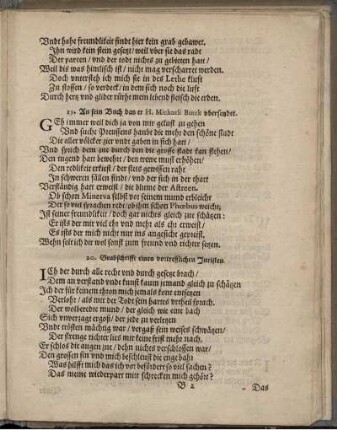 Vnde hohe freundlikeit findt hier kein grab gebawet.
Ihn wird kein stein gesetzt / weil vber sie das radt
Der parcen / vnd der todt nichts zu gebieten hatt /
Weil dis was himlisch ist / nicht mag verscharret werden.
Doch vntersteh ich mich sie in des Lesers lufft
Zu stossen / so verdeckt / in dem sich noch die lufft
Durch hertz vnd glider rührt: mein lebend fleisch die erden.
19. An sein Buch das er H. Michaeli Borck vberseudet.
GEh immer weil dich ja von mir gelust zu gehen
Vnd suche Preussens haubt die mehr den schöne stadt
Die aller völcker zier vnd gaben in sich hatt /
Vnd sprich dem zu durch den die grosse stadt kan stehen /
Den tugend hatt bewehrt / den ehre must erhöhen /
Den redlikeit erkläst / der stets gewissen rath
In schweren fällen findt / vnd der sich in der that
Verständig hatt erweist / die blume der Astreen.
Ob schon Minerva selbst vor seinem mund erbleicht
Der so viel sprachen redt / ob ihm schon Phœbus weicht;
Ist seiner freundlikeit / doch gar nichts gleich zue schätzen:
Er ists der mir viel eh vnd mehr als ehr erweist /
Er ists der mich nicht nur ins angesicht gepreist,
Wehn solt ich der wol sonst zum freund vnd richter setzen.
20. Grabschrifft eines vortrefflichen Juristen.
ICh der durch alle recht vnd durch gesetz brach /
Dem an verstand vnd kunst kaum jemand gleich zu schätzen
Ich der für keinem thron mich jemals kont entsetzen
Verlohr / als mir der Todt sein hartes vrtheil sprach.
Der wolberedte mund / der gleich wie eine bach
Sich vnverzagt ergoß / der jede zu verletzen
Vnd trösten mächtig war / vergaß sein weises schwätzen /
Der strenge richter lies mir keine frist mehr nach.
Er schlos die augen zue / dehn nichts verschlossen war /
Den grossen sin vnd mich beschleust die enge bahr
Was hilfft mich das ich vor beförderr so viel sachen?
Das meine wiederpart mir schrecken mich gehört?
B 2
Das